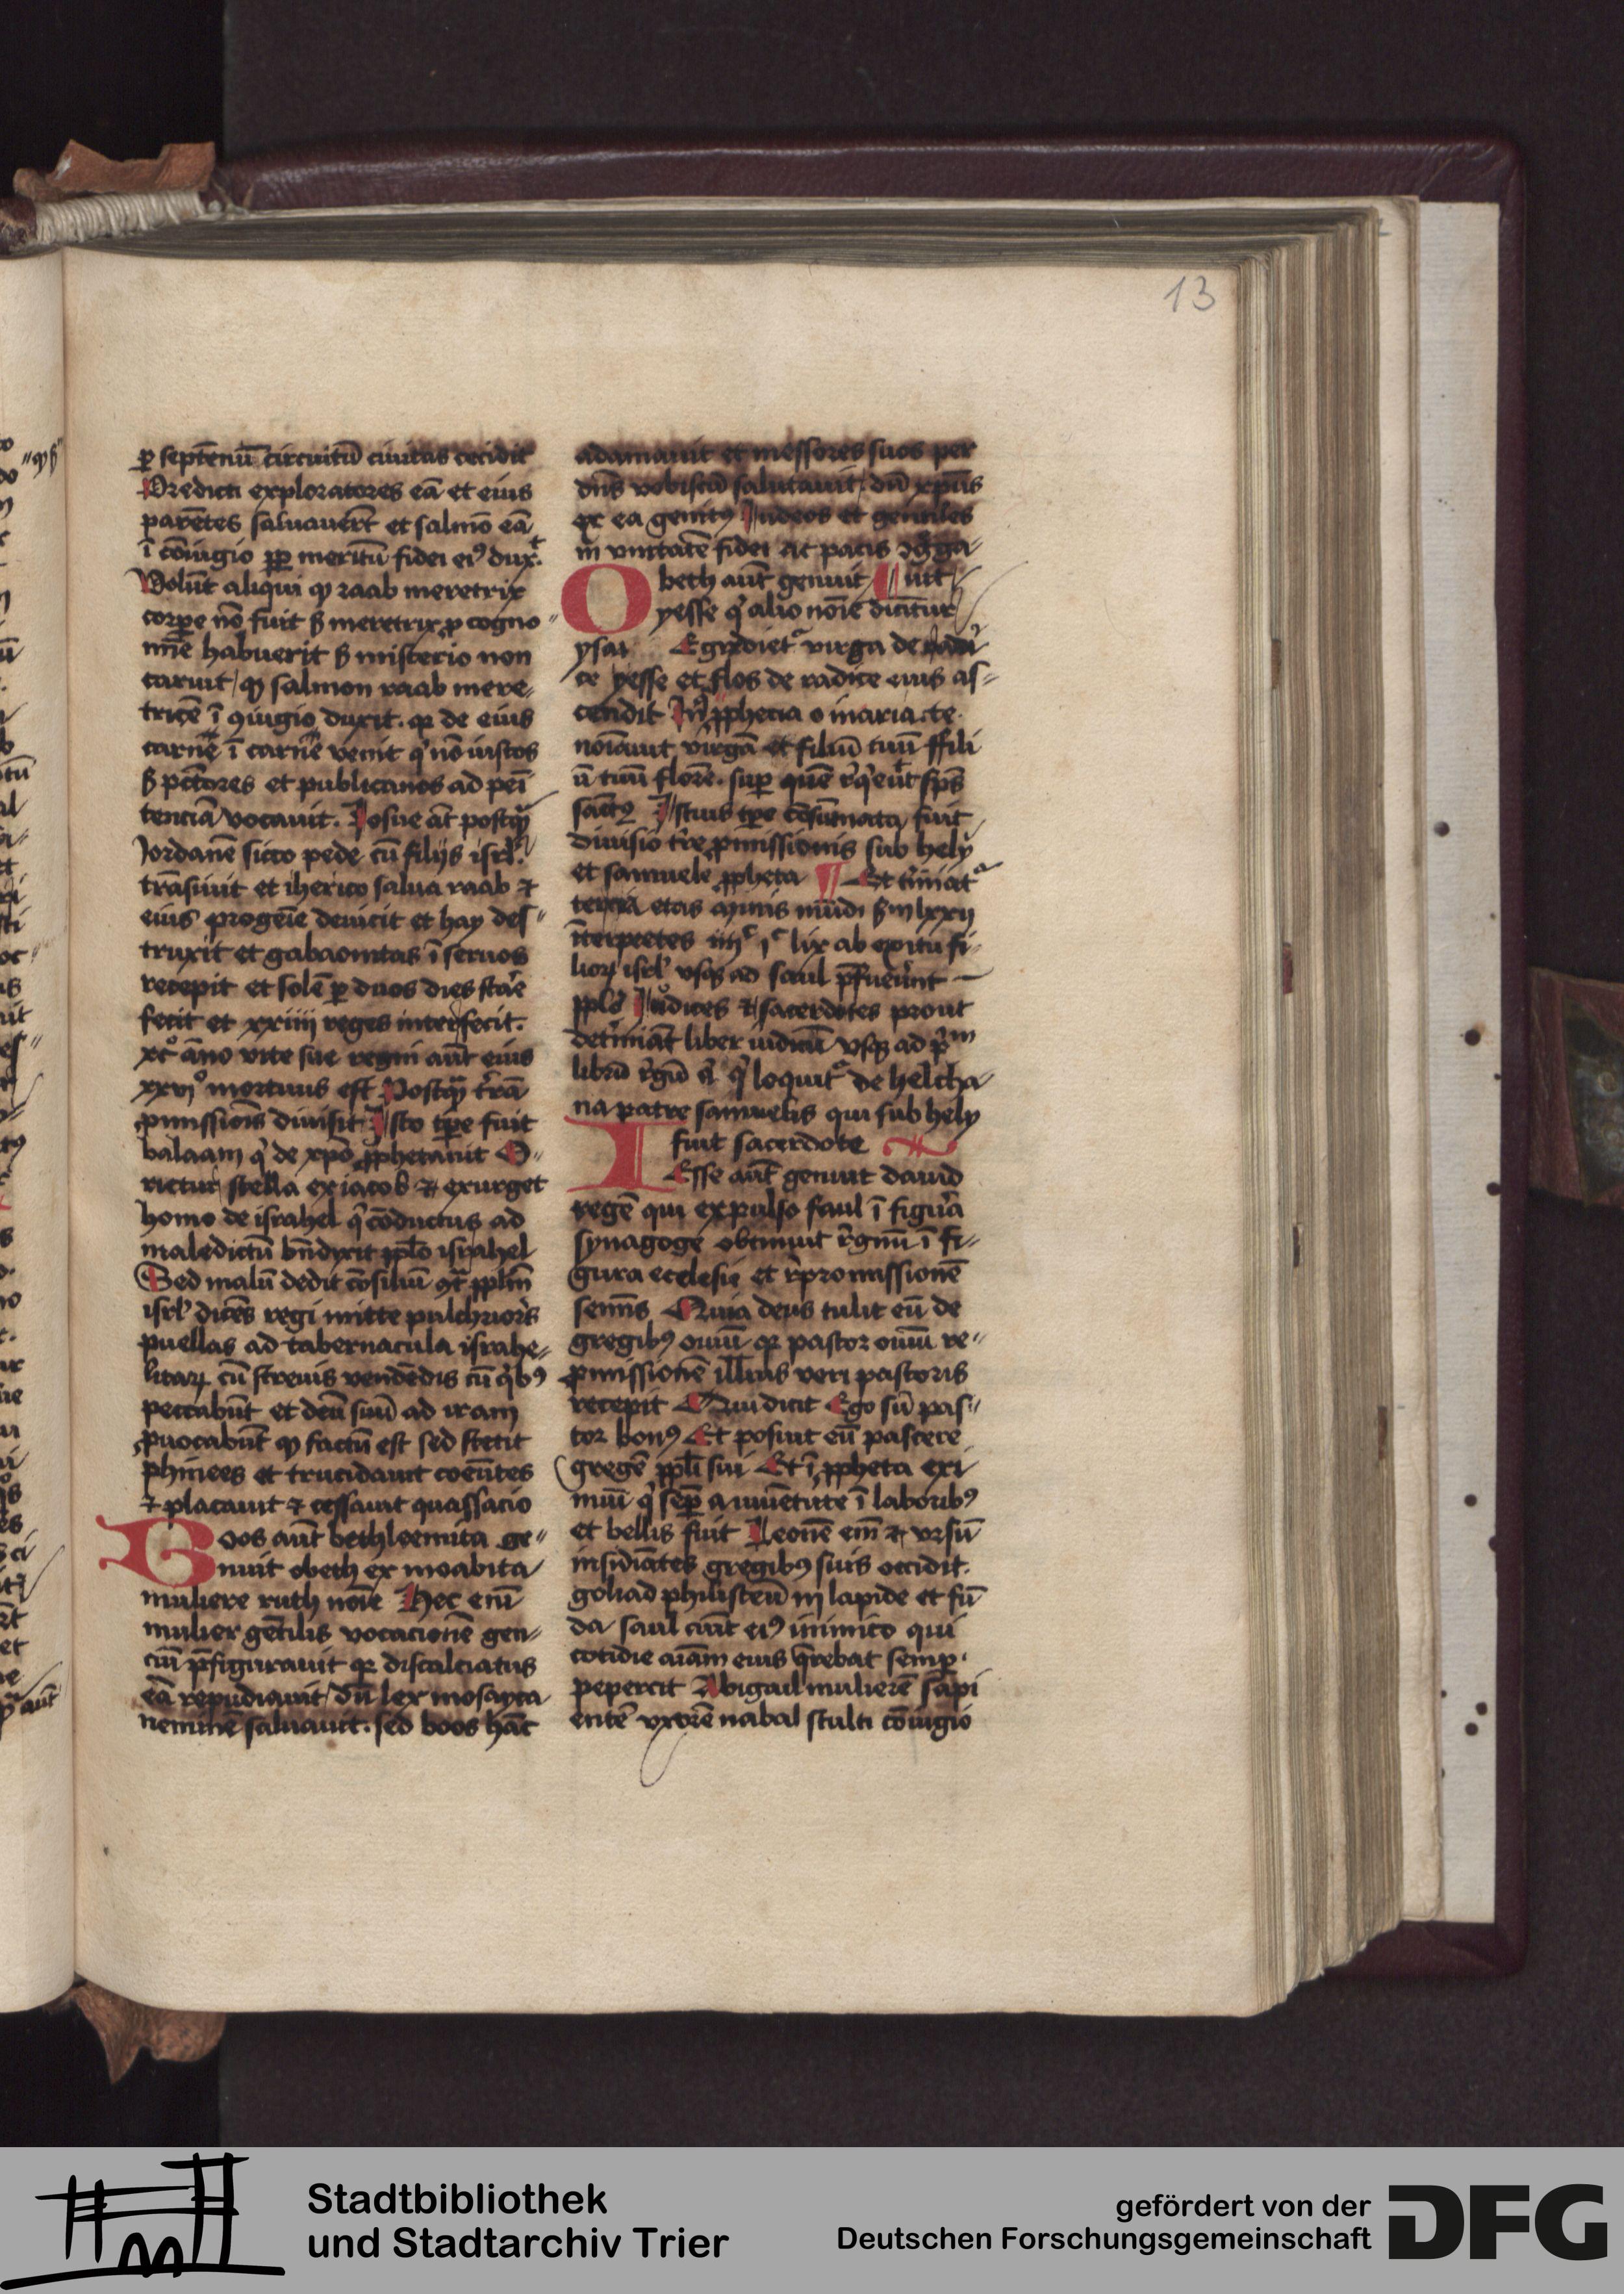 13
ꝑ septenū circuitū ciuitas cecidit
Predicti exploratores eā et eius
parētes saluauert̄ et salmō eā
ī cōiugio ꝓpꝑ meritū fidei eiꝰ dux
Volūt aliqui ꝙ raab meretrix
corꝑe nō fuit ß meretrix ꝓ cogno
mīe habuerit ß misterio non
caruit / ꝙ salmon raab mere
tricē ī ꝯiugio duxit. qꝛ de eius
carnē ī carnē venit qͥ nō iustos
ß pctōres et publicanos ad peī
tenciā vocauit. Josue āt postqͣ
Jordanē sicco pede cū filijs isrl̓
trāsiuit et iherico salua raab ⁊
eius progeīe deuicit et hay des
truxit et gabaonitas ī seruos
recepit et solē ꝑ duos dies stare
fecit et xxiiii reges interfecit.
xcͦ āno vite sue regni aūt eius
xxviͦ mortuus est Postqͣ trā
ꝓmissiōis diuisit Isto tꝑe fuit
balaam qͥ de xpō ꝓphetauit O
rietur stella ex iacob ⁊ exurget
homo de israhel qͥ cōductus ad
maledictū bn̄dixit ppl̄o israhel
Sed malū dedit cōsiliū ꝯͣ pplm̄
isrl̓ dicēs regi mitte pulchriores
puellas ad tabernacula israhe
litaꝝ cū streuis vendēdis cū qͥbꝰ
peccabūt et deū suū ad iram
ꝓuocabūt ꝙ factū est sed stetit
phinees et trucidauit coeūtes
⁊ placauit ⁊ cessauit quassacio
Boos aūt bethleemita ge
nuit obeth ex moabita
muliere ruth noīe Hec eniꝫ
mulier gētilis vocacionē gen
ciū p̄figurauit qꝛ discalciatus
eā repudiauit / dū lex mosayca
neminē saluauit. sed boos hāc
adamauit et messores suos per
dn̄s vobiscū salutauit / dū xpūs
ex ea genitꝰ Judeos et gentiles
in vnitatē fidei ac pacis ꝯg̓ga
Obeth aūt genuit / uit
yesse qͥ alio noīe dicitur
ysai Egredietͣ virga de radi
ce yesse et flos de radice eius as
cendit In ꝓphecia o maria te
noīauit virgā et filiū tuū ffili
ū tuū florē. suꝑ quē rͤqͥeuͥt sp̄s
sāctꝰ Istius tꝑe cōsūmata fuit
diuisio trͤe ꝓmissionis sub hely
et samuele ꝓpheta ¶ Et tͤminatͣ
tercia etas mūdi ßm lxxij
īterpretes iiijͨ lix ab exitu fi
lioꝝ isrl̓ vsqꝫ ad saul p̄fueru̅t
ppl̄o Judices ⁊ sacerdotes prout
detͤmiāt liber iudicū vsqꝫ ad pͥm
librū rͤgū qͥ loquitͣ de helcha
na patre samuelis qui sub hely
fuit sacerdote
Iesse aūt genuit dauid
regē qui expulso saul ī figura
synagoge obtinuit rͤgnū ī fi
gura ecclesie et rͤpromissionē
semīs Quia deus tulit eū de
gregibꝰ ouiū qꝛ pastor ouiū re
ꝓmissionē illius veri pastoris
recepit Qui dicit Ego sū pas
tor bonꝰ Et posuit eū pascere
gregē ppl̄i sui Et ī ꝓpheta exi
miū qͥ semꝑ a iuuētute ī laboribꝰ
et bellis fuit Leonē em̄ ⁊ vrsū
insidiātes gregibꝰ suis occidit.
goliad philisteū in lapide et fū
da saul eiꝰ inimico qui
cotidie aīam eius q̄rebat semꝑ
pepercit Abigail mulierē sapi
entē vxorē nabal stulti cōiugio
Stadtbibliothek
und Stadtarchiv Trier
gefördert von der
Deutschen Forschungsgemeinschaft
DFG